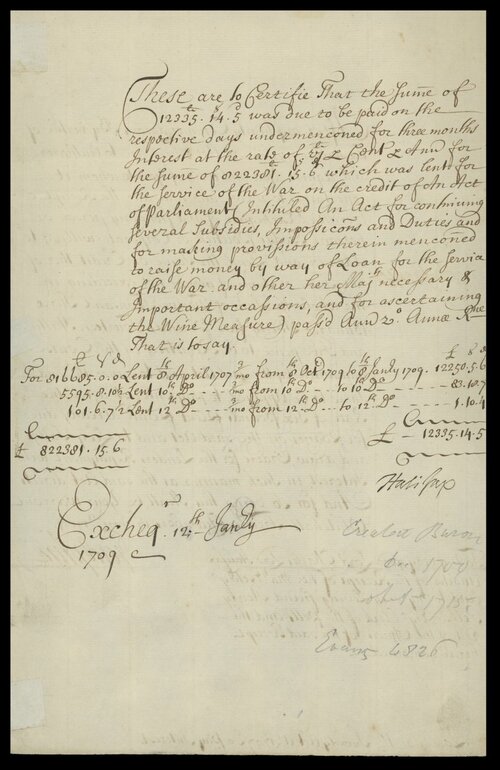 These are to Certifie That the sume of
12335. 14. 5 was due to be paid on the
respective days undermenconed for three months
Interest at the rate of vj £ ℘ Cent ℘ Ann̄ for
the sume of 822381. 15. 6 which was lent for
the Service of the War on the credit of An Act
of Parliament (Intituled An Act for continuing
several Subsidies, Imposicōns and Duties and
for making provissions therein menconed
to raise money by way of Loan for the Service
of the War and other her Maj.ts necessary &
Important occassions, and for ascertaining
the Wine Measure) pass'd Ann̄ 2o Annæ Rnæ
That is to say.
£ s d
£ s d
For 816685. 0. 0 Lent 8 April 1707 3 mo from 8 Octr 1709 to 8 Janly 1709. 12250. 5. 6
5595. 8. 10½ Lent 10th Do --- 3 mo from 10 Do ... to 10th Do --- 83. 18. 7
101. 6. 7½ Lent 12th Do --- 3 mo from 12th Do ... to 12th Do --- 1. 10. 4
£ 822381. 15. 6
£ -- 12335. 14. 5
Halifax
Excheqr. 12th Janly
1709
1700
1715
Evans 4826